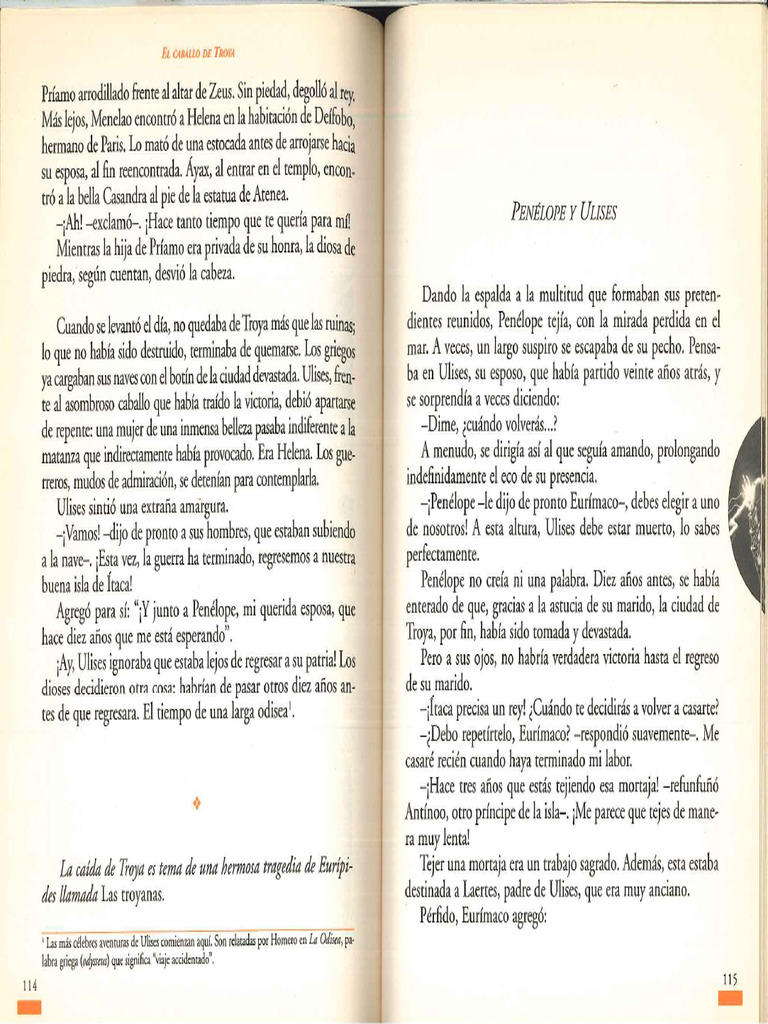 EL CABALLO DE TROYA
Príamo arrodillado frente al altar de Zeus. Sin piedad, degolló al rey.
Más lejos, Menelao encontró a Helena en la habitación de Deífobo,
hermano de Paris. Lo mató de una estocada antes de arrojarse hacia
su esposa, al fin reencontrada. Áyax, al entrar en el templo, encon-
tró a la bella Casandra al pie de la estatua de Atenea.
–¡Ah! –exclamó–. ¡Hace tanto tiempo que te quería para mí!
Mientras la hija de Príamo era privada de su honra, la diosa de
piedra, según cuentan, desvió la cabeza.
Cuando se levantó el día, no quedaba de Troya más que las ruinas;
lo que no había sido destruido, terminaba de quemarse. Los griegos
ya cargaban sus naves con el botín de la ciudad devastada. Ulises, fren-
te al asombroso caballo que había traído la victoria, debió apartarse
de repente: una mujer de una inmensa belleza pasaba indiferente a la
matanza que indirectamente había provocado. Era Helena. Los gue-
rreros, mudos de admiración, se detenían para contemplarla.
Ulises sintió una extraña amargura.
–¡Vamos! –dijo de pronto a sus hombres, que estaban subiendo
a la nave–. ¡Esta vez, la guerra ha terminado, regresemos a nuestra
buena isla de Ítaca!
Agregó para sí: “¡Y junto a Penélope, mi querida esposa, que
hace diez años que me está esperando”.
¡Ay, Ulises ignoraba que estaba lejos de regresar a su patria! Los
dioses decidieron otra cosa: habrían de pasar otros diez años an-
tes de que regresara. El tiempo de una larga odisea¹.
La caída de Troya es tema de una hermosa tragedia de Eurípi-
des llamada Las troyanas.
¹ Las más célebres aventuras de Ulises comienzan aquí. Son relatadas por Homero en La Odisea, pa-
labra griega (odysseia) que significa “viaje accidentado”.
114
PENÉLOPE Y ULISES
Dando la espalda a la multitud que formaban sus preten-
dientes reunidos, Penélope tejía, con la mirada perdida en el
mar. A veces, un largo suspiro se escapaba de su pecho. Pensa-
ba en Ulises, su esposo, que había partido veinte años atrás, y
se sorprendía a veces diciendo:
–Dime, ¿cuándo volverás...?
A menudo, se dirigía así al que seguía amando, prolongando
indefinidamente el eco de su presencia.
–¡Penélope –le dijo de pronto Eurímaco–, debes elegir a uno
de nosotros! A esta altura, Ulises debe estar muerto, lo sabes
perfectamente.
Penélope no creía ni una palabra. Diez años antes, se había
enterado de que, gracias a la astucia de su marido, la ciudad de
Troya, por fin, había sido tomada y devastada.
Pero a sus ojos, no habría verdadera victoria hasta el regreso
de su marido.
–¡Ítaca precisa un rey! ¿Cuándo te decidirás a volver a casarte?
–¿Debo repetírtelo, Eurímaco? –respondió suavemente–. Me
casaré recién cuando haya terminado mi labor.
–¡Hace tres años que estás tejiendo esa mortaja! –refunfuñó
Antínoo, otro príncipe de la isla–. ¡Me parece que tejes de mane-
ra muy lenta!
Tejer una mortaja era un trabajo sagrado. Además, esta estaba
destinada a Laertes, padre de Ulises, que era muy anciano.
Pérfido, Eurímaco agregó:
115